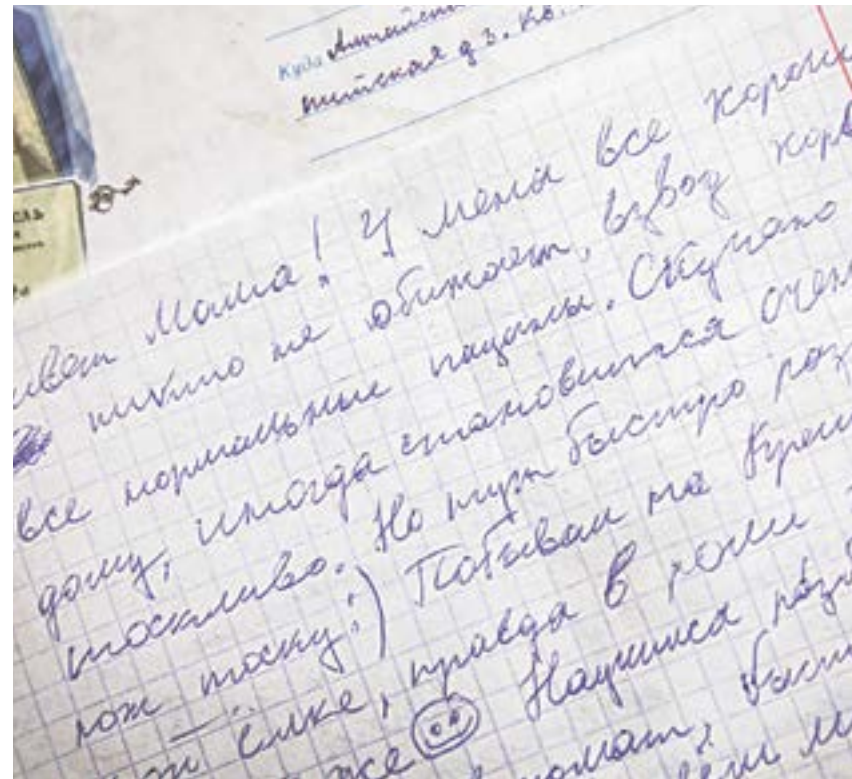 Куда
д 3. кв.
Мама! У меня все хорош
никто не обижает, взвод хор
все нормальные пацаны. Скучаю
дому, иногда становится очен
тоскливо. Но тут быстро раз
тоску:) Побывал на Кремл
ёлке, правда в роли
Научился разб